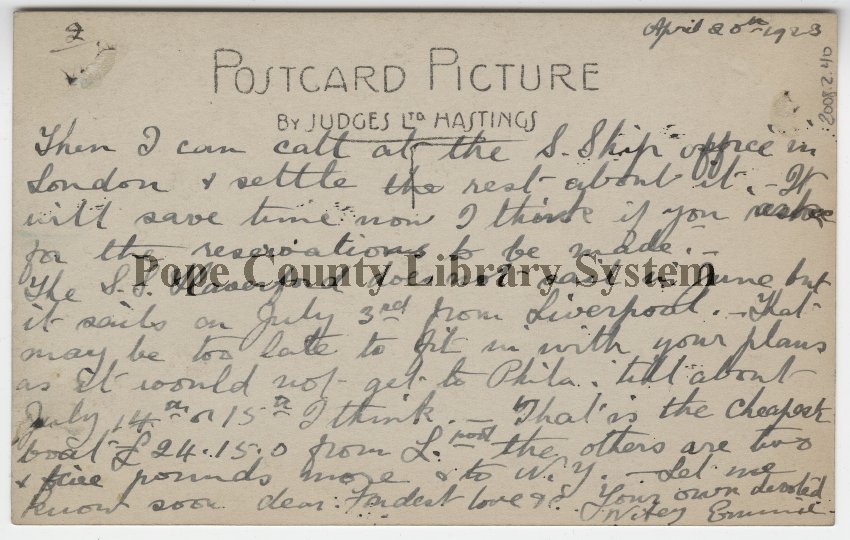 2
April 20th 1923
2008.2.40
POSTCARD PICTURE
BY JUDGES LTD HASTINGS
Then I can call at the S. Ship office in
London & settle the rest about it. - It
will save time now I think if you
for the reservations to be made. -
Pope County Library System
The S.S. Haverford does not sail in June but
it sails on July 3rd from Liverpool. - That
may be too late to fit in with your plans
as it would not get to Phila. till about
July 14th or 15th I think. - That is the cheapest
boat £24.15.0 from L.pool the others are two
& five pounds more & to N.Y. - Let me
know soon dear. Fondest love &c. Your own devoted
Wifey Emmie